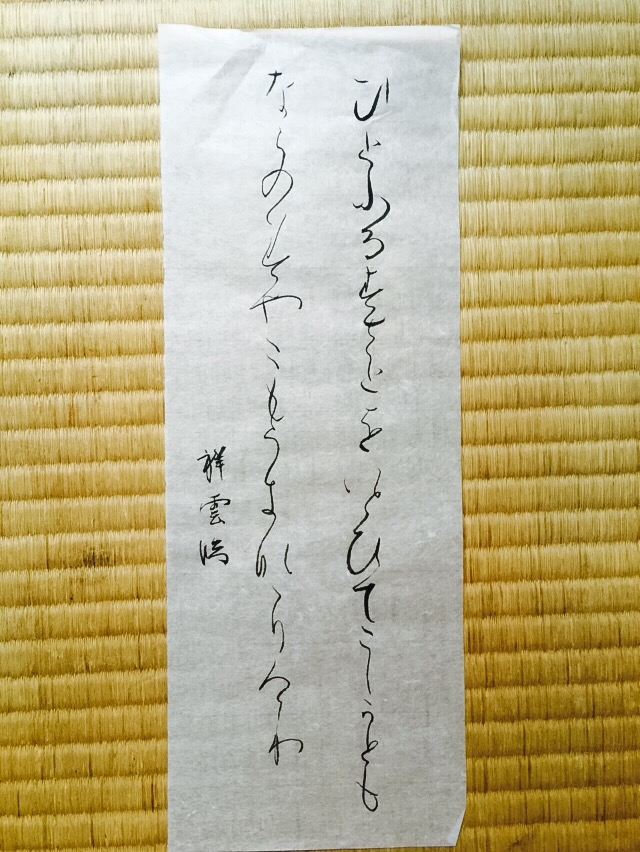 ひとふるすさとをいとひてこしかとも
ならのみやこもうきななりけり
祥雲臨